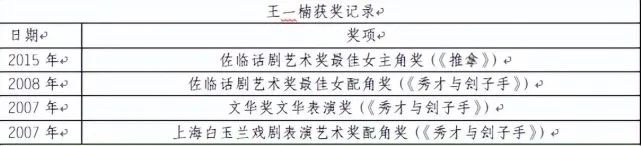 王一楠获奖记录
日期 奖项
2015 年 佐临话剧艺术奖最佳女主角奖(《推拿》)
2008 年 佐临话剧艺术奖最佳女配角奖(《秀才与刽子手》)
2007 年 文华奖文华表演奖(《秀才与刽子手》)
2007 年 上海白玉兰戏剧表演艺术奖配角奖(《秀才与刽子手》)